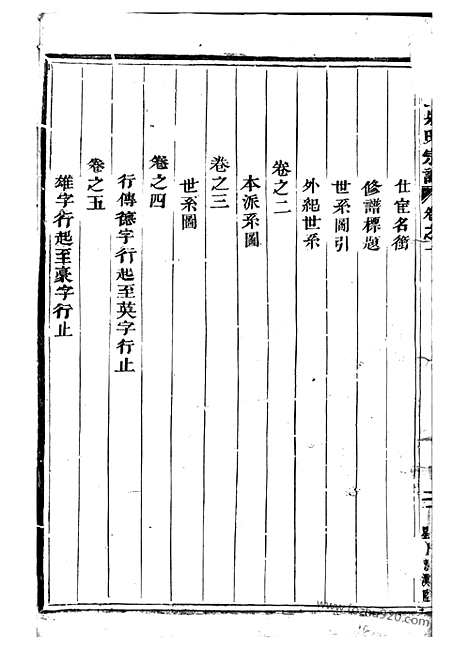 氏宗譜 卷之一
仕宦名銜
修譜標題
世系圖引
外紀世系
卷之二
本派系圖
卷之三
世系圖
卷之四
行傳德字行起至英字行止
卷之五
雄字行起至豪字行止
www.fozhu920.com